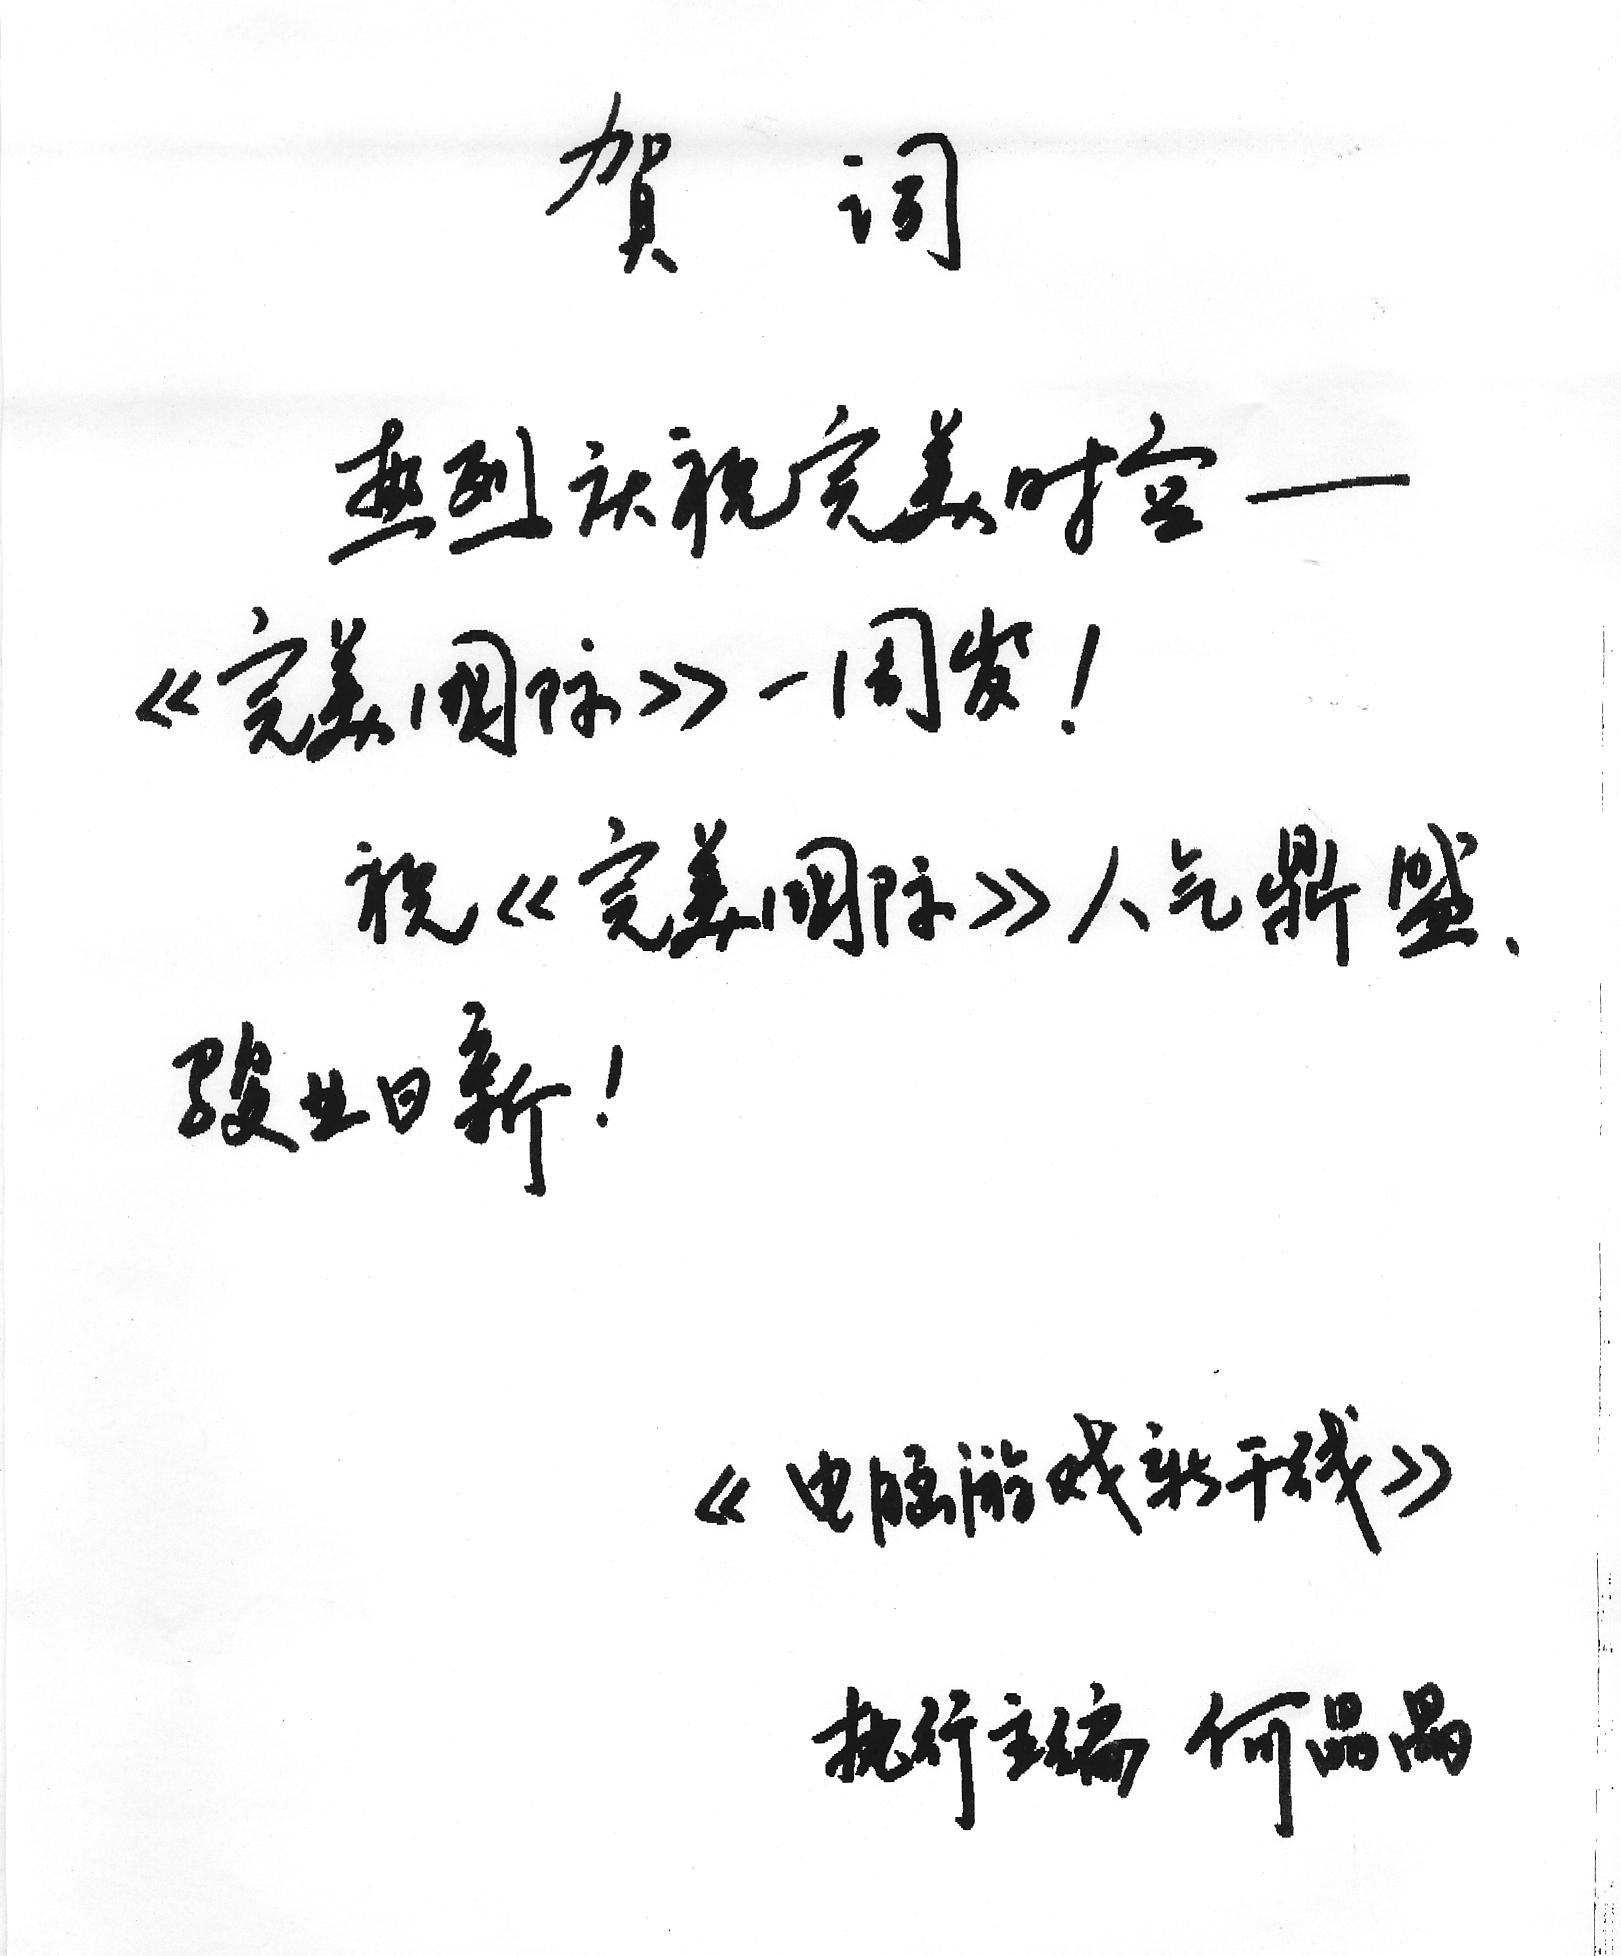 贺 词
热烈庆祝完美时空——
《完美国际》一周岁!
祝《完美国际》人气鼎盛、
骏业日新!
《电脑游戏新干线》
执行主编 何晶晶